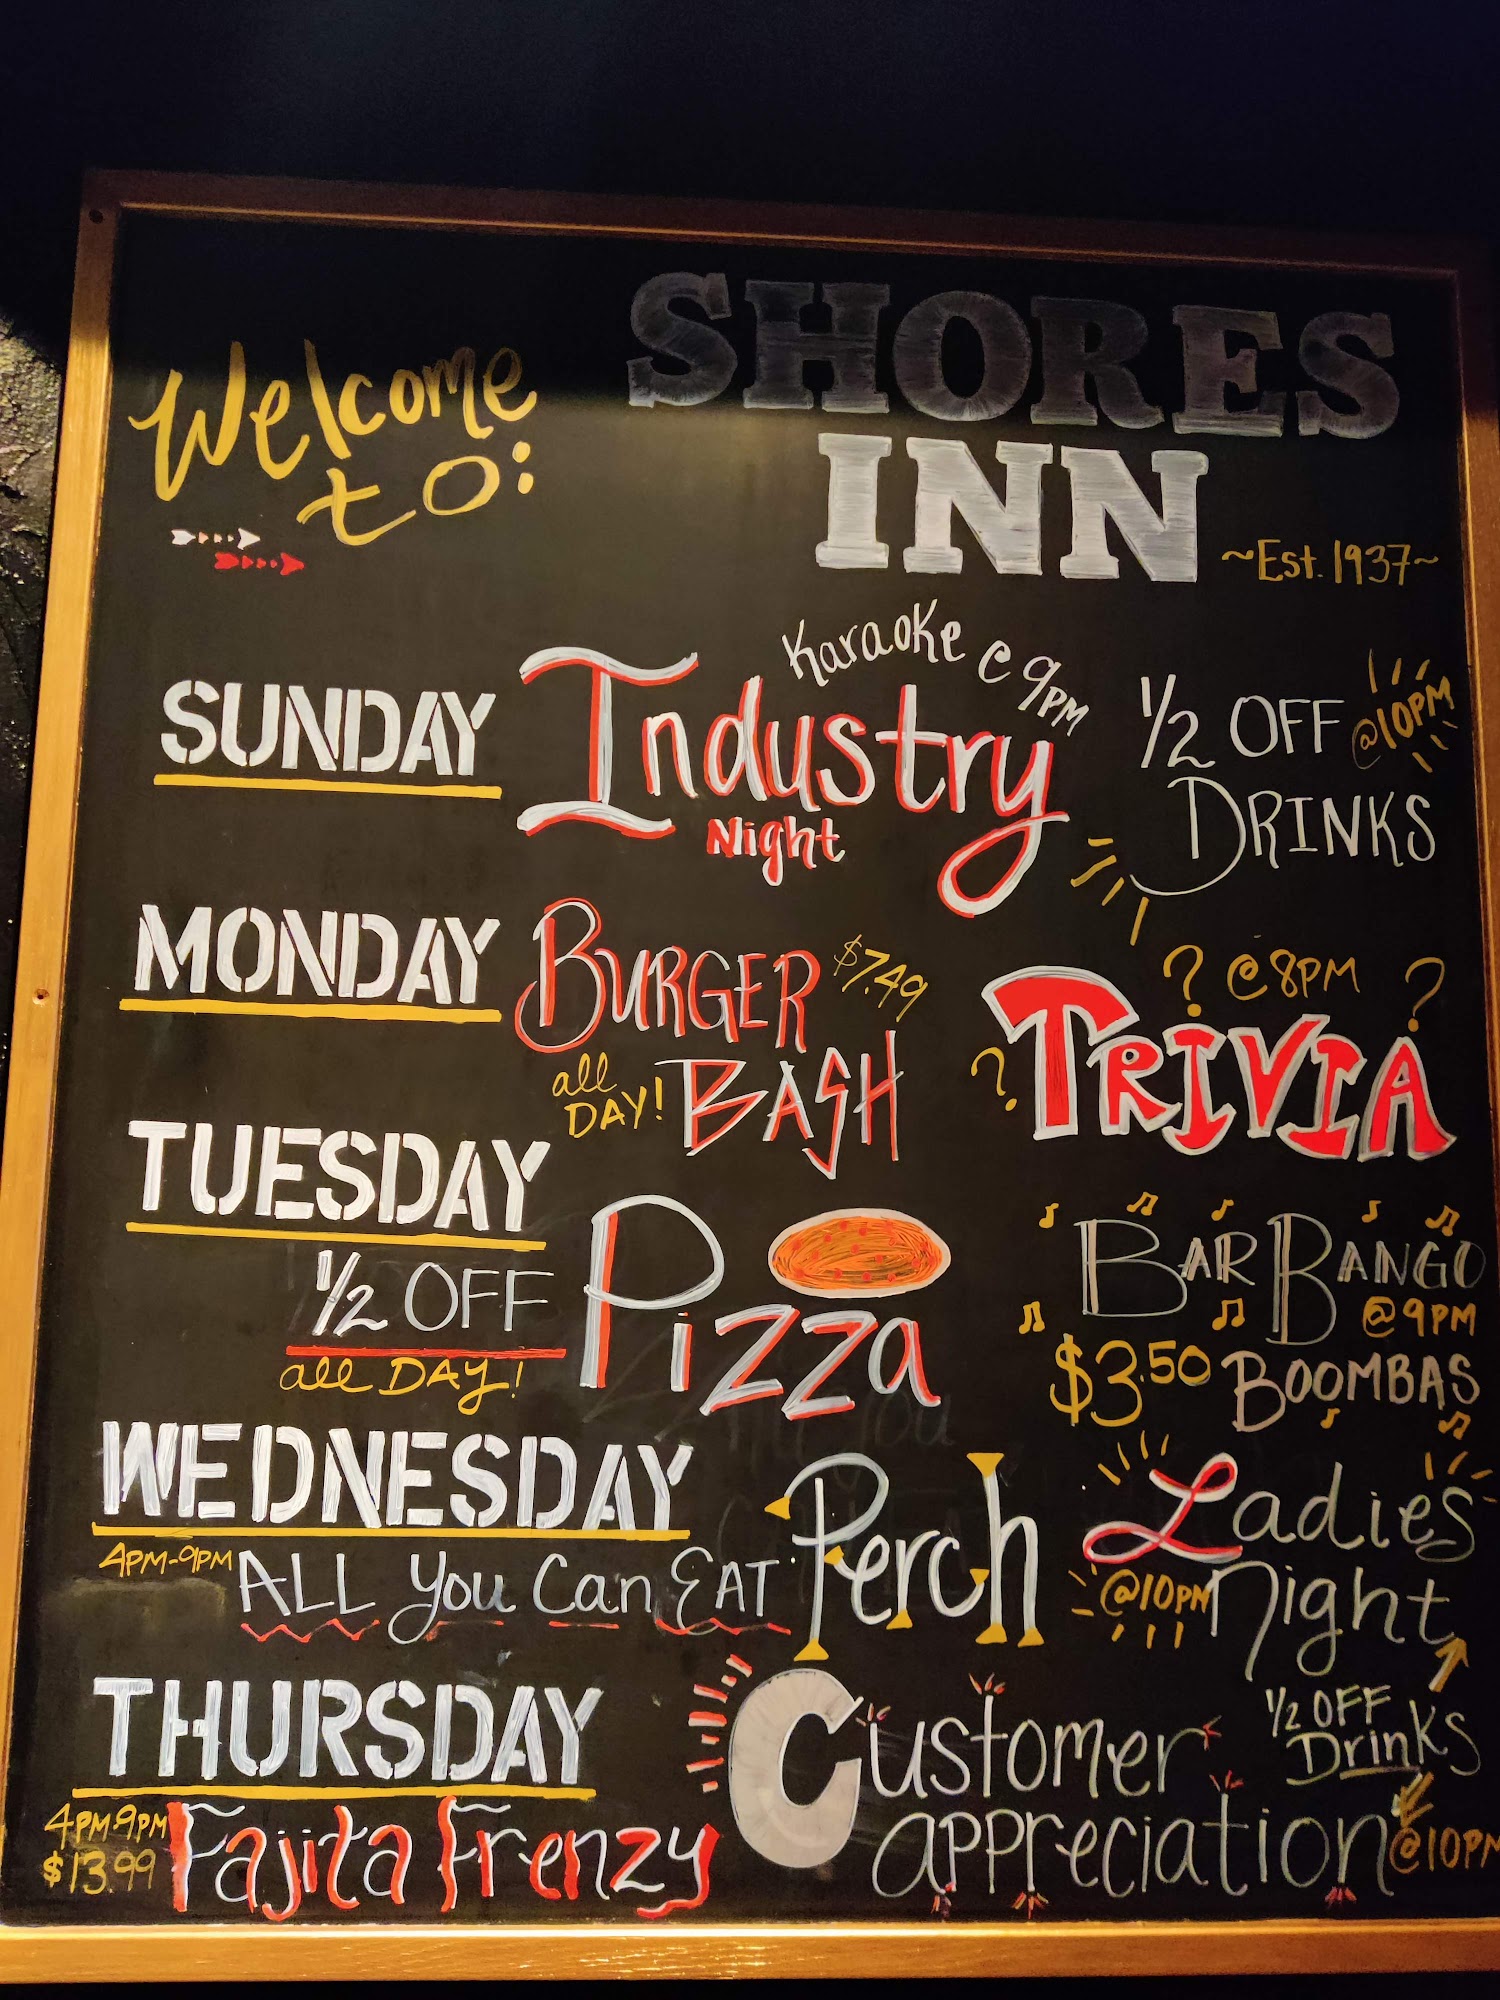 Welcome
to:
SHORES
INN
~Est. 1937~
SUNDAY
Karaoke @ 9PM
Industry
Night
1/2 OFF @10PM
DRINKS
MONDAY
BURGER $7.49
all DAY! BASH
? @8PM ?
? TRIVIA
TUESDAY
1/2 OFF
all DAY!
Pizza
BAR BANGO
@9PM
$3.50 BOOMBAS
WEDNESDAY
4PM-9PM ALL You Can EAT
Perch
Ladies
@10PM Night
THURSDAY
4PM-9PM
$13.99
Fajita Frenzy
Customer
appreciation
1/2 OFF
Drinks
@10PM